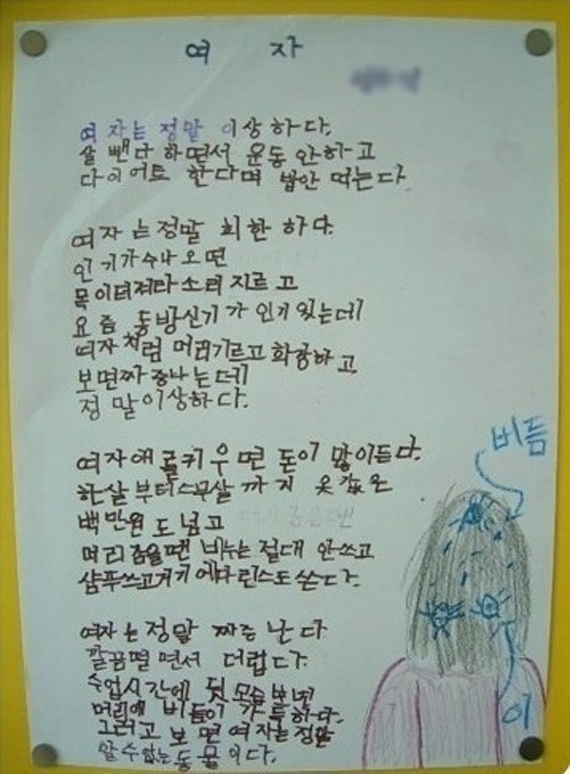 여 자
여자는 정말 이상하다.
살 뺀다 하면서 운동 안하고
다이어트 한다며 밥안 먹는다
여자는정말 희한 하다.
인기가수나오면
목이터져라소리 지르고
요즘 동방신기가 인기있는데
여자처럼 머리기르고 화장하고
보면짜증나는데
정말이상하다.
여자애를키우면 돈이 많이든다.
한살부터스무살까지 옷값은
백만원도넘고
머리감을땐 비누는절대 안쓰고
샴푸쓰고거기에다린스도쓴다.
여자는정말 짜증난다
깔끔떨면서 더럽다.
수업시간에 뒷모습보면
머리에 비듬이가득하다.
그러고보면여자는정말
알수없는동물이다.
비듬
이